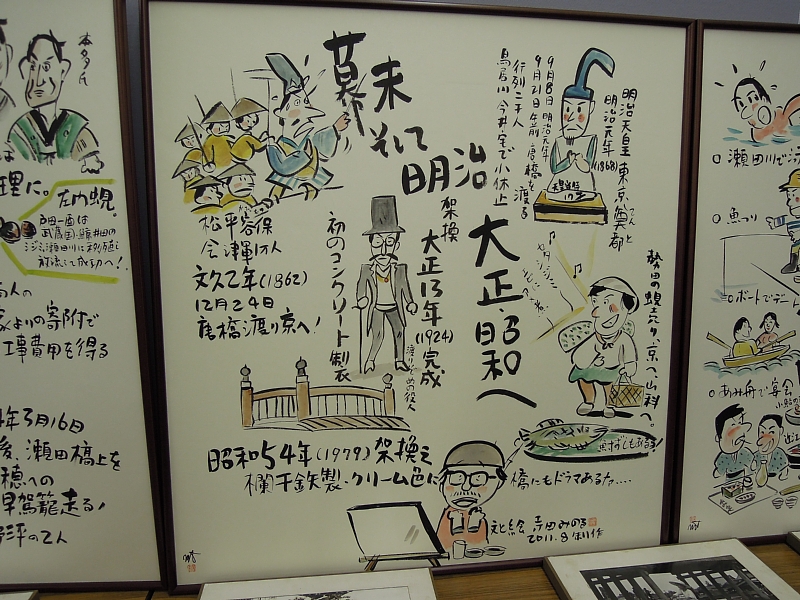 幕末
そして
明治
大正・昭和へ
明治天皇 東京奠都
てんと
明治元年(1868)
9月8日 明治元年
9月21日 午前 唐橋を渡る
行列二千人
鳥居川 今井宅で小休止
松平容保
会津軍1万人
文久2年(1862)
12月24日
唐橋渡り京へ!
初のコンクリート製衣
架換
大正13年
(1924)完成
渡りぞめの役人
勢田の蜆売り、京へ、山科へ。
昭和54年(1979)架換え
欄干鉄製・クリーム色に
橋にもドラマあるナ‥‥
文と絵 寺田みのる
2011.8制作
本多氏
理に。
左内蜆。
武蔵国
放流して成功へ!
よりの寄附で
工事費用を得る
年3月16日
後、瀬田橋上を
穂への
早駕籠走る!
評の2人
○瀬田川で
○魚つり
○ボートでデー
○あみ舟で宴会